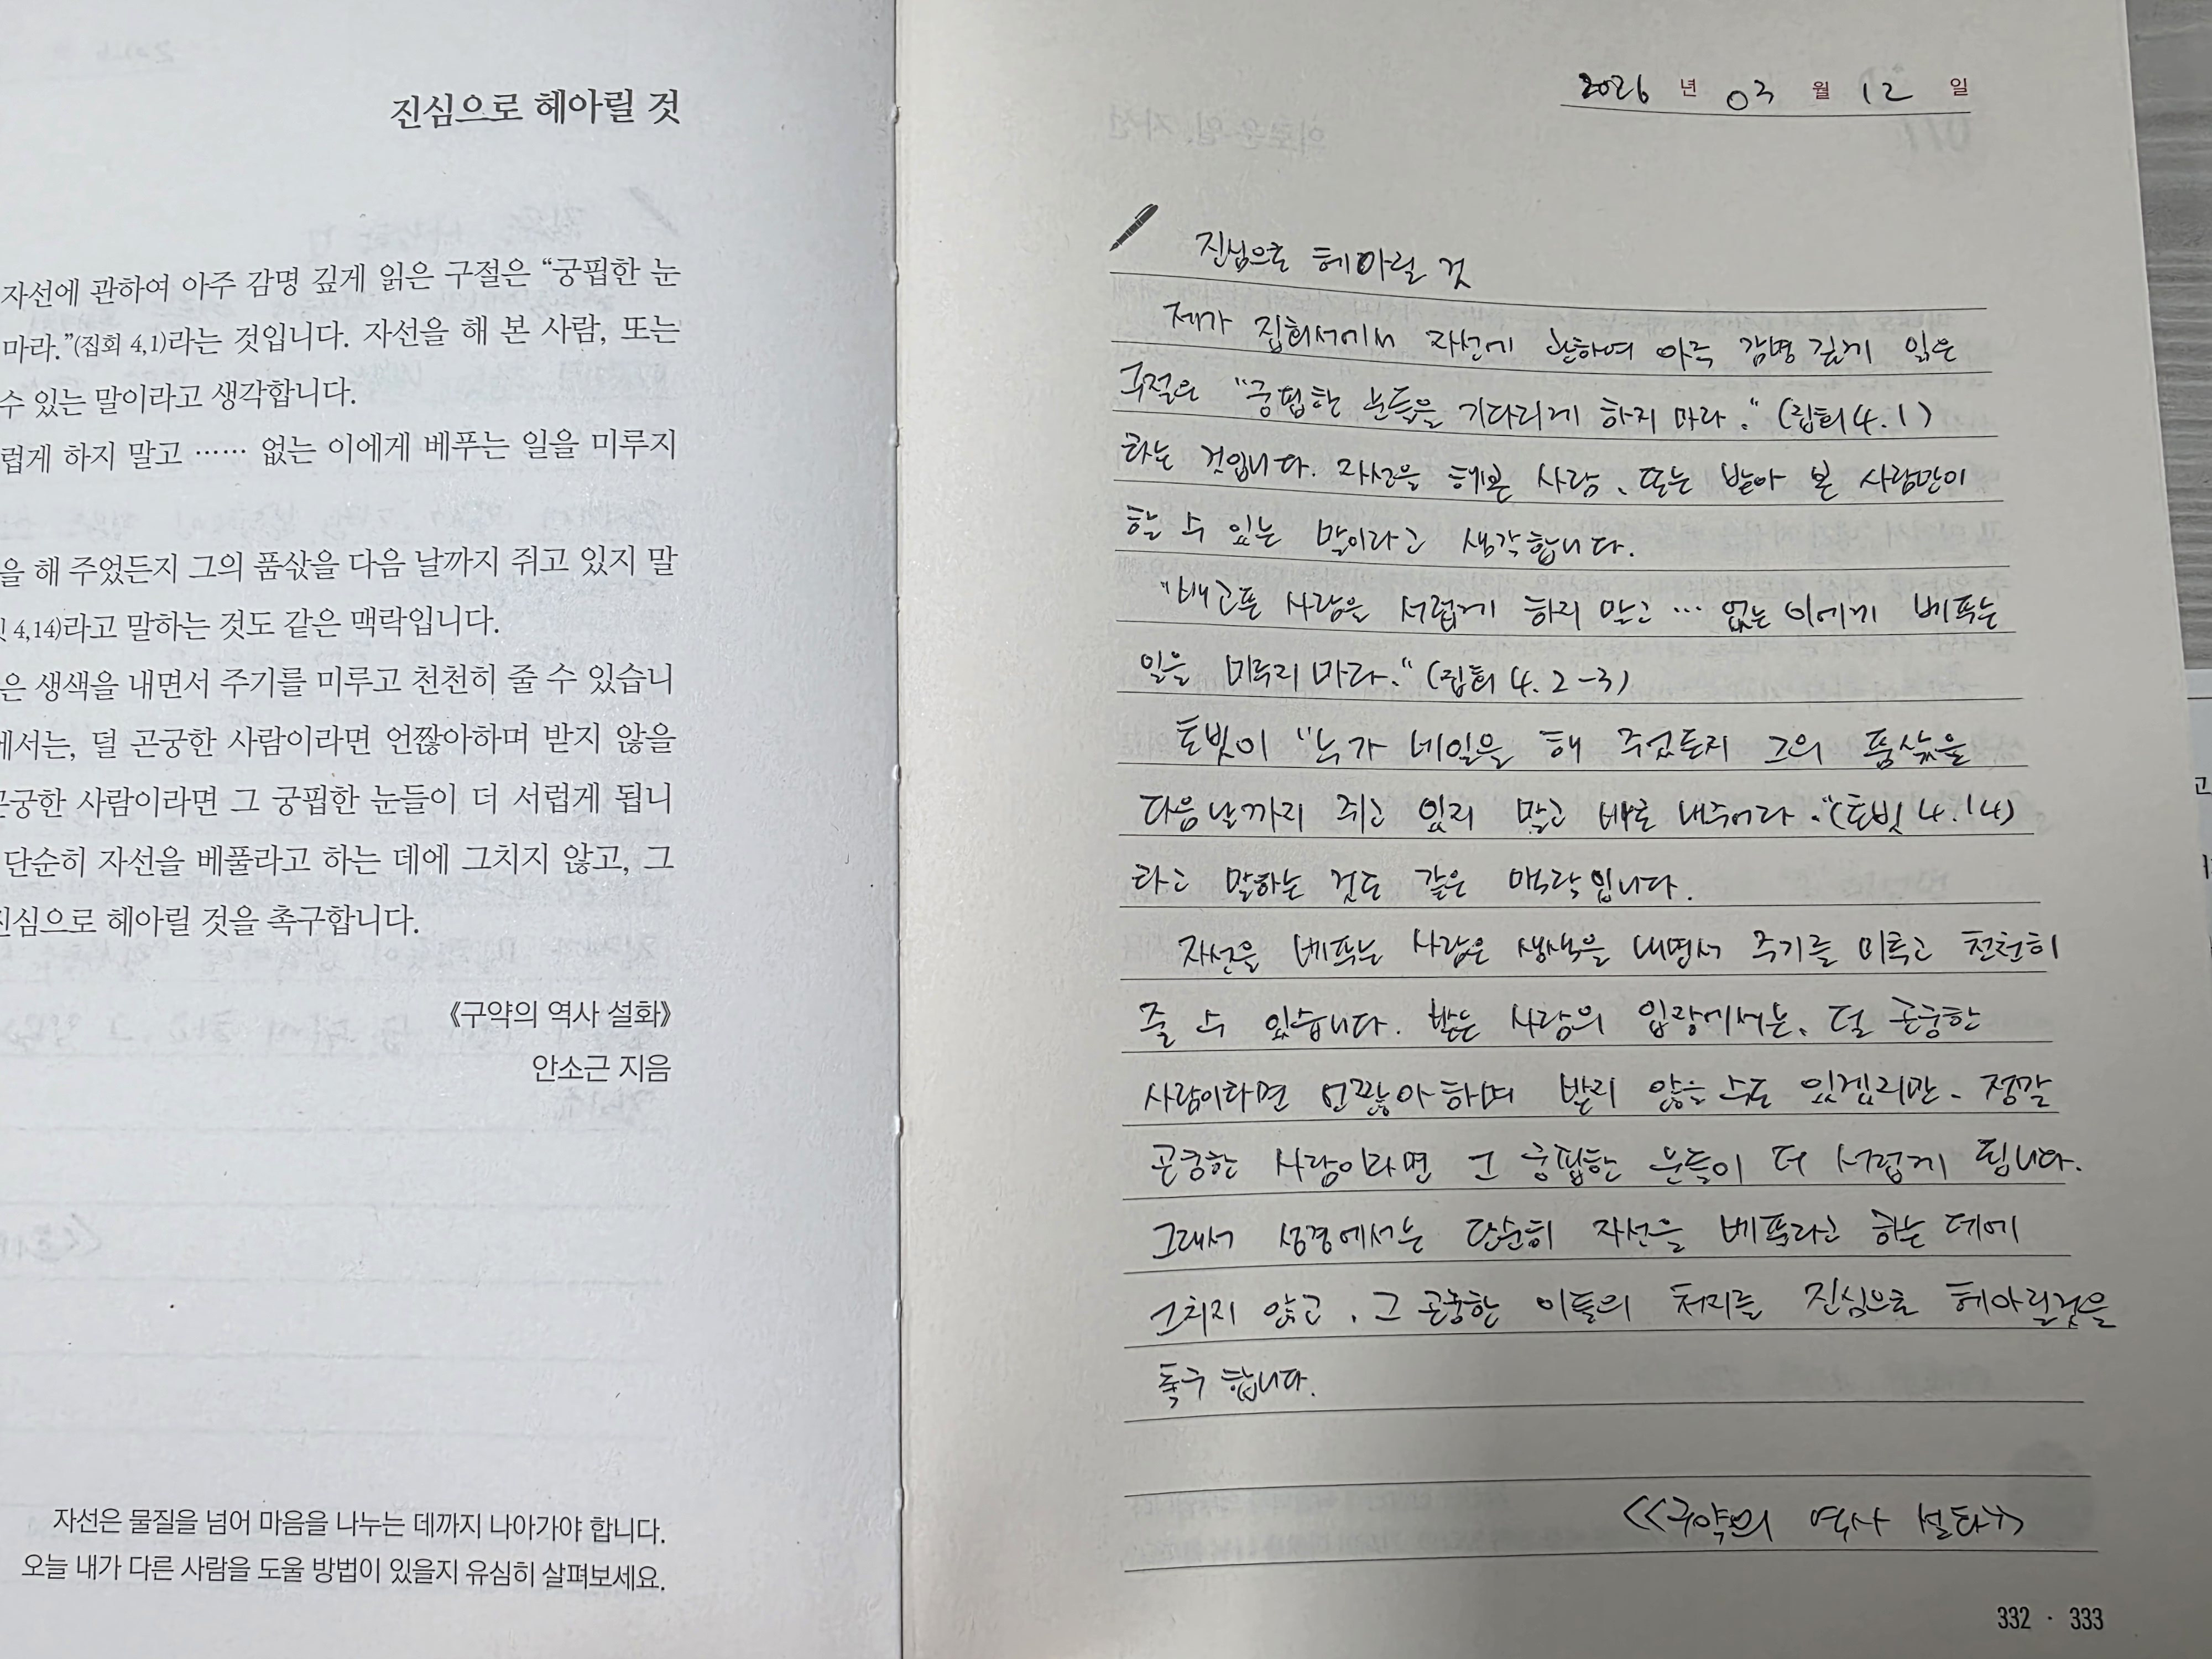 진심으로 헤아릴 것
자선에 관하여 아주 감명 깊게 읽은 구절은 “궁핍한 눈
마라.”(집회 4,1)라는 것입니다. 자선을 해 본 사람, 또는
수 있는 말이라고 생각합니다.
럽게 하지 말고 …… 없는 이에게 베푸는 일을 미루지
을 해 주었든지 그의 품삯을 다음 날까지 쥐고 있지 말
4,14)라고 말하는 것도 같은 맥락입니다.
은 생색을 내면서 주기를 미루고 천천히 줄 수 있습니
에서는, 덜 곤궁한 사람이라면 언짢아하며 받지 않을
곤궁한 사람이라면 그 궁핍한 눈들이 더 서럽게 됩니
단순히 자선을 베풀라고 하는 데에 그치지 않고, 그
진심으로 헤아릴 것을 촉구합니다.
《구약의 역사 설화》
안소근 지음
자선은 물질을 넘어 마음을 나누는 데까지 나아가야 합니다.
오늘 내가 다른 사람을 도울 방법이 있을지 유심히 살펴보세요.
2026 년 03 월 12 일
진심으로 헤아릴 것
제가 집회서에서 자선에 관하여 아주 감명 깊게 읽은
구절은 "궁핍한 눈들을 기다리게 하지 마라." (집회 4.1)
라는 것입니다. 자선을 해본 사람, 또는 받아 본 사람만이
할 수 있는 말이라고 생각합니다.
"배고픈 사람을 서럽게 하지 말고 … 없는 이에게 베푸는
일을 미루지 마라." (집회 4.2-3)
토빗이 "누가 네일을 해 주었든지 그의 품삯을
다음날까지 쥐고 있지 말고 바로 내주어라."(토빗 4.14)
라고 말하는 것도 같은 맥락입니다.
자선을 베푸는 사람은 생색을 내면서 주기를 미루고 천천히
줄 수 있습니다. 받는 사람의 입장에서는, 덜 곤궁한
사람이라면 언짢아하며 받지 않을 수도 있겠지만, 정말
곤궁한 사람이라면 그 궁핍한 눈들이 더 서럽게 됩니다.
그래서 성경에서는 단순히 자선을 베풀라고 하는 데에
그치지 않고, 그 곤궁한 이들의 처지를 진심으로 헤아릴것을
촉구 합니다.
<<구약의 역사 설화>>
332 · 333